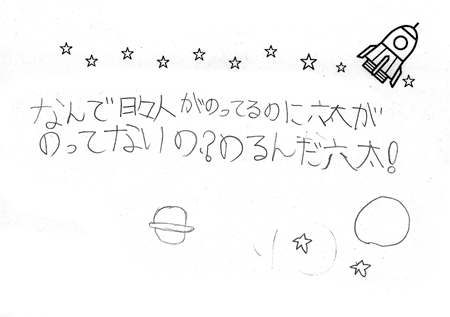 なんで日々人がのってるのに六太が
のってないの?のるんだ六太!